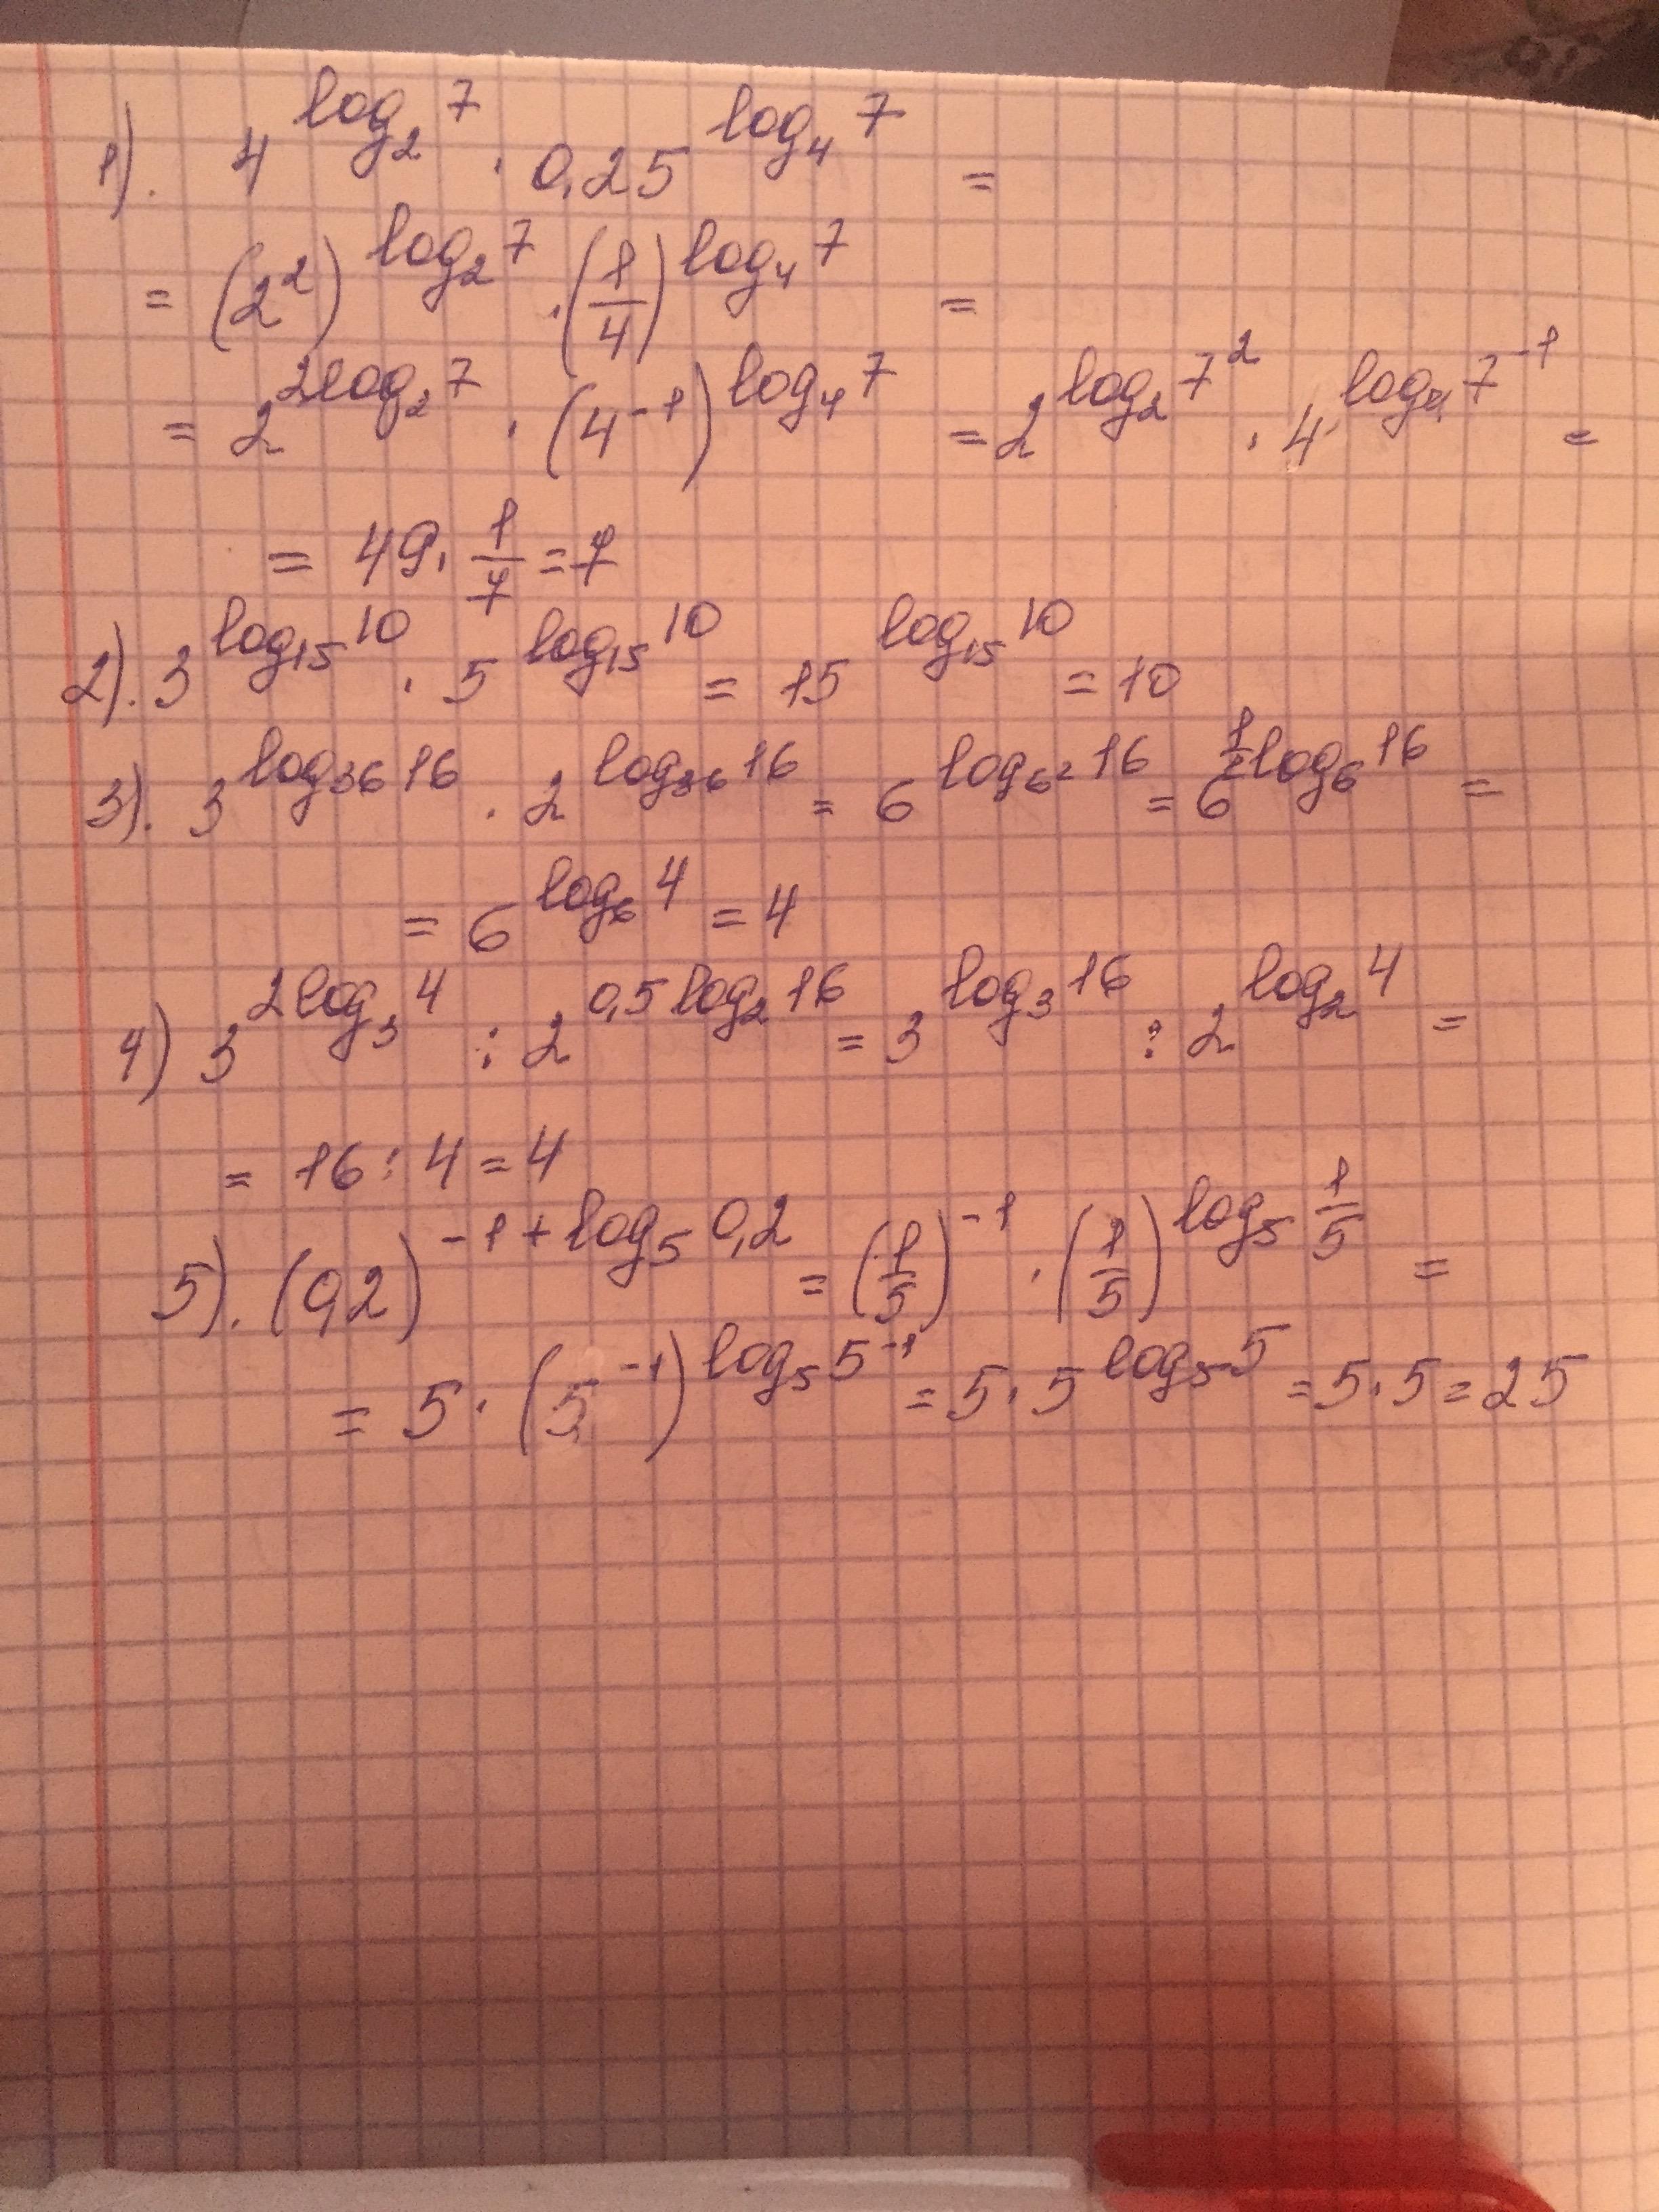 1). 4^{log₂7} · 0,25^{log₄7} =
= (2²)^{log₂7} · (1/4)^{log₄7} =
= 2^{2log₂7} · (4⁻¹)^{log₄7} = 2^{log₂7²} · 4^{log₄7⁻¹} =
= 49 · 1/7 = 7
2). 3^{log₁₅10} · 5^{log₁₅10} = 15^{log₁₅10} = 10
3). 3^{log₃₆16} · 2^{log₃₆16} = 6^{log_{6²}16} = 6^{1/2 log₆16} =
= 6^{log₆4} = 4
4) 3^{2log₃4} : 2^{0,5log₂16} = 3^{log₃16} : 2^{log₂4} =
= 16 : 4 = 4
5). (0,2)^{-1+log₅0,2} = (1/5)⁻¹ · (1/5)^{log₅ 1/5} =
= 5 · (5⁻¹)^{log₅5⁻¹} = 5 · 5^{log₅5} = 5 · 5 = 25